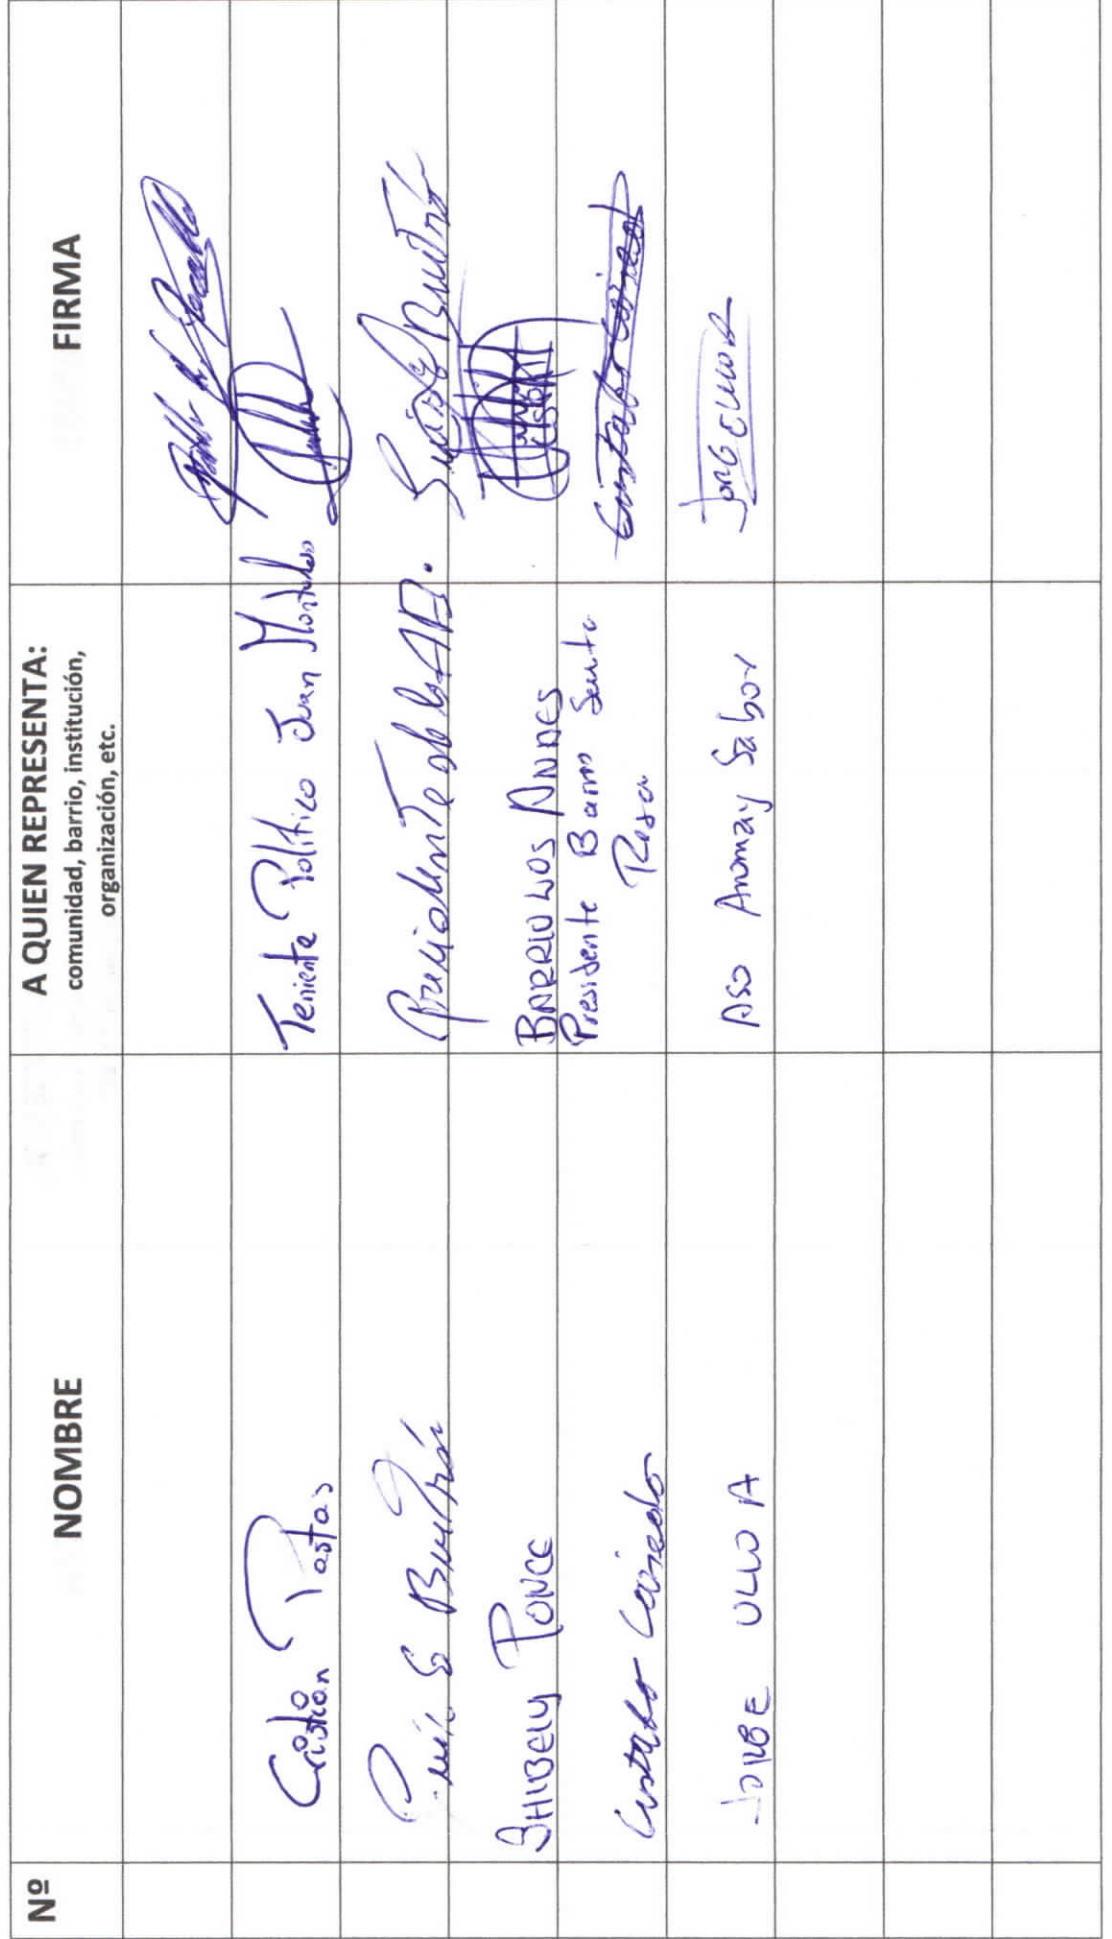 Nº NOMBRE A QUIEN REPRESENTA: FIRMA
comunidad, barrio, institución,
organización, etc.
Cristian Pastas Teniente Político Juan Montalvo
Luis G Buitrón Presidente de la
SHIBELY PONCE BARRIO LOS ANDES
Gustavo Caicedo Presidente Barrio Santa
Rosa
JORGE ULLOA ASO Anomay Sabor Jorge Ulloa